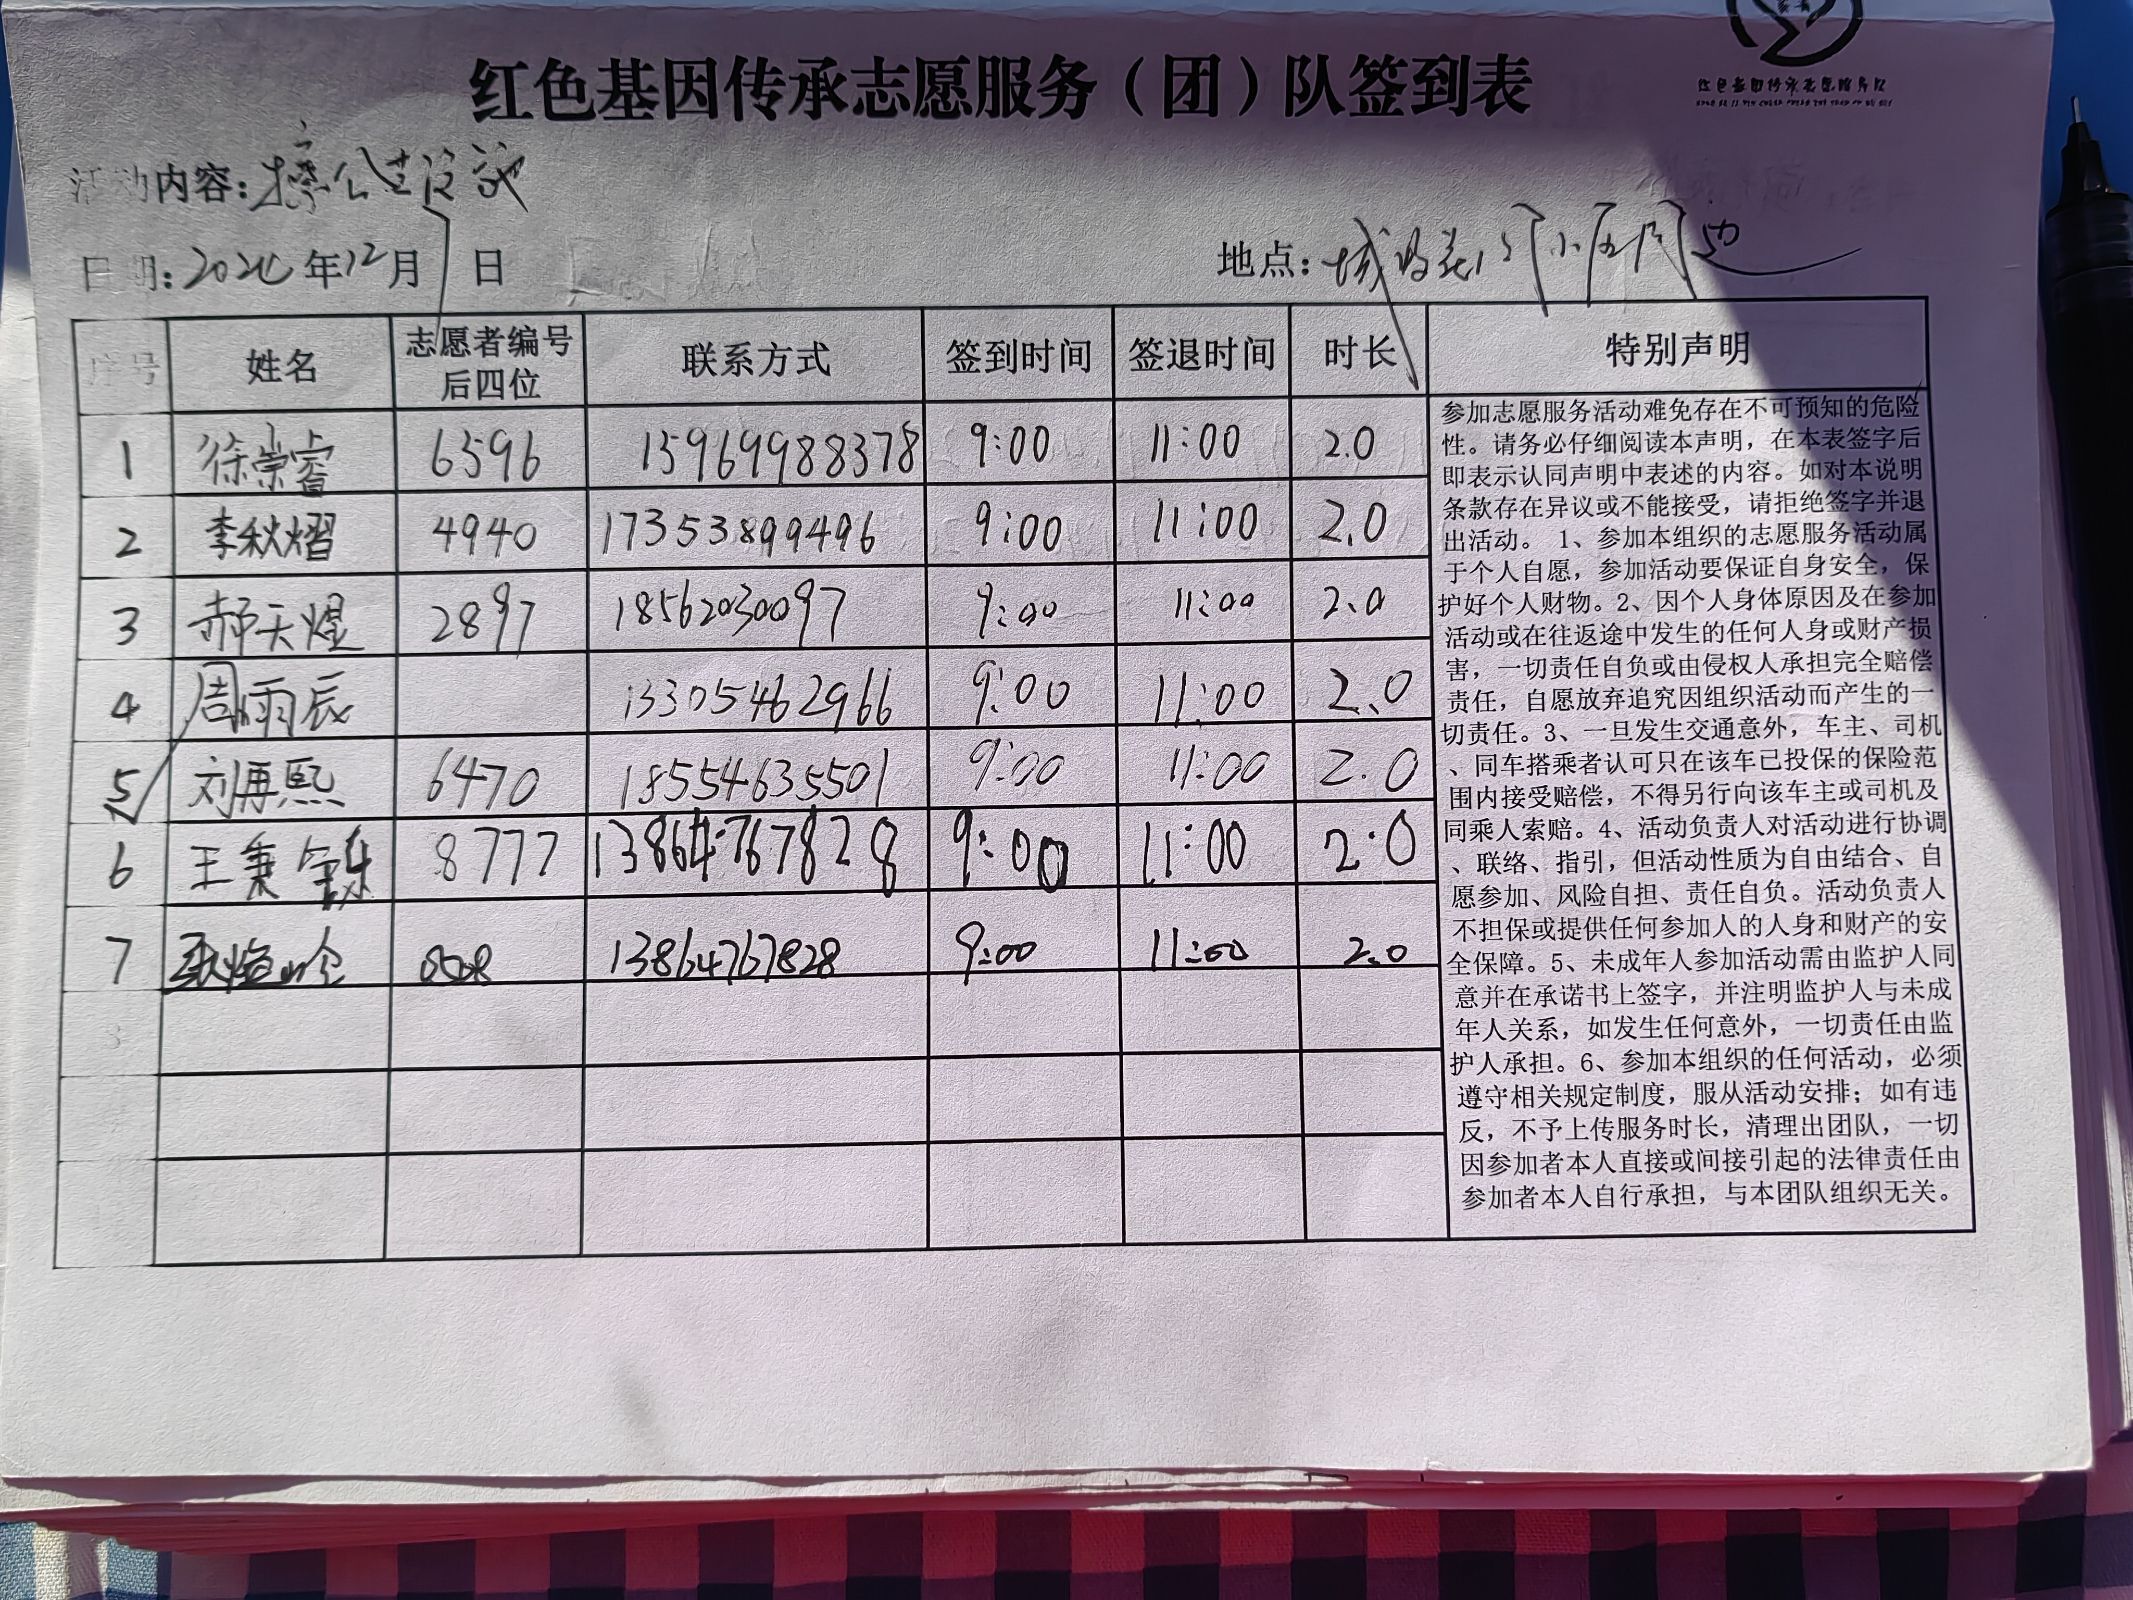 红色基因传承志愿服务（团）队签到表
红色基因传承志愿服务队
活动内容：擦公共设施
日期：2024年12月7日 地点：
序号 姓名 志愿者编号后四位 联系方式 签到时间 签退时间 时长 特别声明
1 徐崇睿 6596 15969988378 9:00 11:00 2.0
2 李秋熠 4940 17353899496 9:00 11:00 2.0
3 郝天煜 2897 18562030097 9:00 11:00 2.0
4 周雨辰 13305462966 9:00 11:00 2.0
5 刘再熙 6470 18554635501 9:00 11:00 2.0
6 王秉 8777 13864767828 9:00 11:00 2.0
7 13864767828 9:00 11:00 2.0
8
参加志愿服务活动难免存在不可预知的危险
性。请务必仔细阅读本声明，在本表签字后
即表示认同声明中表述的内容。如对本说明
条款存在异议或不能接受，请拒绝签字并退
出活动。 1、参加本组织的志愿服务活动属
于个人自愿，参加活动要保证自身安全，保
护好个人财物。2、因个人身体原因及在参加
活动或在往返途中发生的任何人身或财产损
害，一切责任自负或由侵权人承担完全赔偿
责任，自愿放弃追究因组织活动而产生的一
切责任。3、一旦发生交通意外，车主、司机
、同车搭乘者认可只在该车已投保的保险范
围内接受赔偿，不得另行向该车主或司机及
同乘人索赔。4、活动负责人对活动进行协调
、联络、指引，但活动性质为自由结合、自
愿参加、风险自担、责任自负。活动负责人
不担保或提供任何参加人的人身和财产的安
全保障。5、未成年人参加活动需由监护人同
意并在承诺书上签字，并注明监护人与未成
年人关系，如发生任何意外，一切责任由监
护人承担。6、参加本组织的任何活动，必须
遵守相关规定制度，服从活动安排；如有违
反，不予上传服务时长，清理出团队，一切
因参加者本人直接或间接引起的法律责任由
参加者本人自行承担，与本团队组织无关。